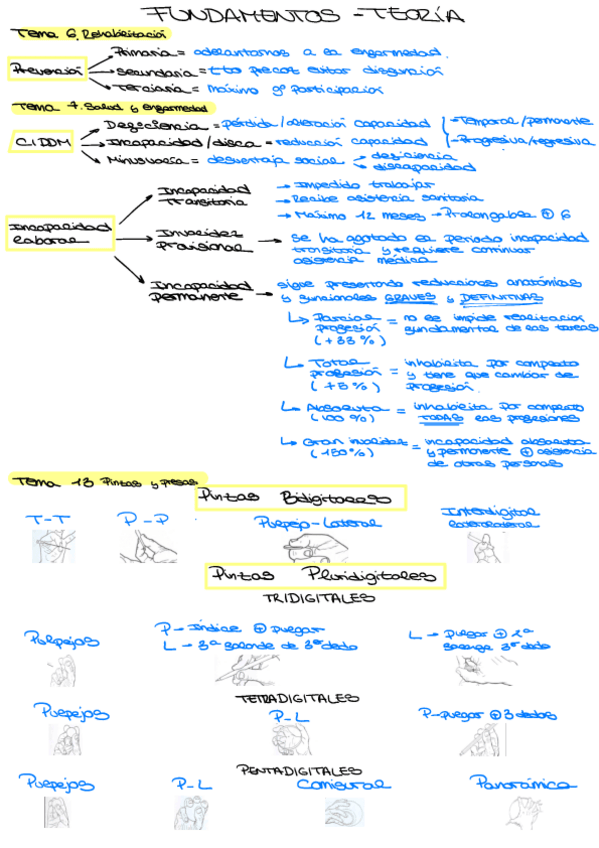 FUNDAMENTOS - TEORÍA
Tema 6. Rehabilitación
Prevención
Primaria = adelantarnos a la enfermedad.
Secundaria = tto precoz evitar disfunción
Terciaria = máximo gº participación
Tema 7. Salud y enfermedad
CIDDM
Deficiencia = pérdida/alteración capacidad
- Temporal/permanente
Incapacidad/disca = reducción capacidad
- Progresiva/regresiva
Minusvalía = desventaja social → deficiencia
→ discapacidad
Incapacidad laboral
Incapacidad Transitoria
→ Impedido trabajar
→ Recibe asistencia sanitaria
→ Máximo 12 meses → Prolongable ⊕ 6
Invalidez Provisional
→ Se ha agotado el periodo incapacidad
transitoria y requiere continuar
asistencia médica
Incapacidad permanente
→ sigue presentando reducciones anatómicas
y funcionales GRAVES y DEFINITIVAS
↳ Parcial profesión (+33%) = no le impide realización
fundamental de las tareas
↳ Total profesión (+5%) = inhabilita por completo
y tiene que cambiar de
profesión
↳ Absoluta (100%) = inhabilita por completo
TODAS las profesiones
↳ Gran invalidez (150%) = incapacidad absoluta
y permanente ⊕ asistencia
de otras personas
Tema 13 Pinzas y presas
Pinzas Bidigitales
T-T
P-P
Pulpejo-Lateral
Interdigital laterolateral
Pinzas Pluridigitales
TRIDIGITALES
Pulpejos
P → Índice ⊕ pulgar
L → 3ª falange de 3º dedo
L → Pulgar ⊕ 2ª
falange 3º dedo
TETRADIGITALES
Pulpejos
P-L
P-pulgar ⊕ 3 dedos
PENTADIGITALES
Pulpejos
P-L
Comisural
Panorámica